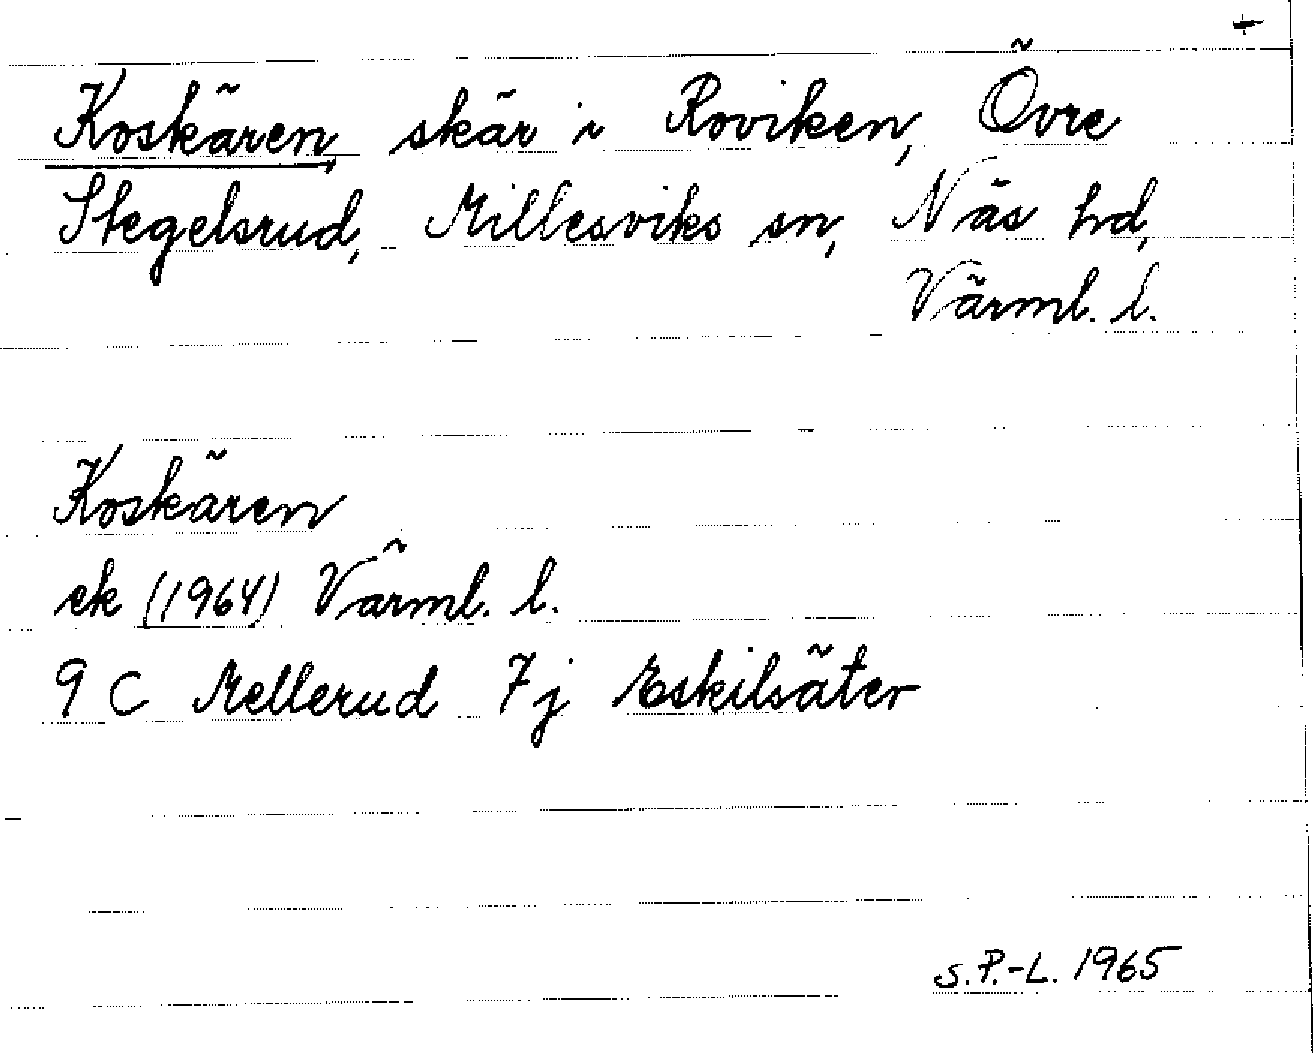 +
Koskären, skär i Roviken, Övre
Stegelsrud, Millesviks sn, Näs hd,
Värml. l.
Koskären
ek (1964) Värml. l.
9 C Mellerud 7j Eskilsäter
S.P.-L. 1965